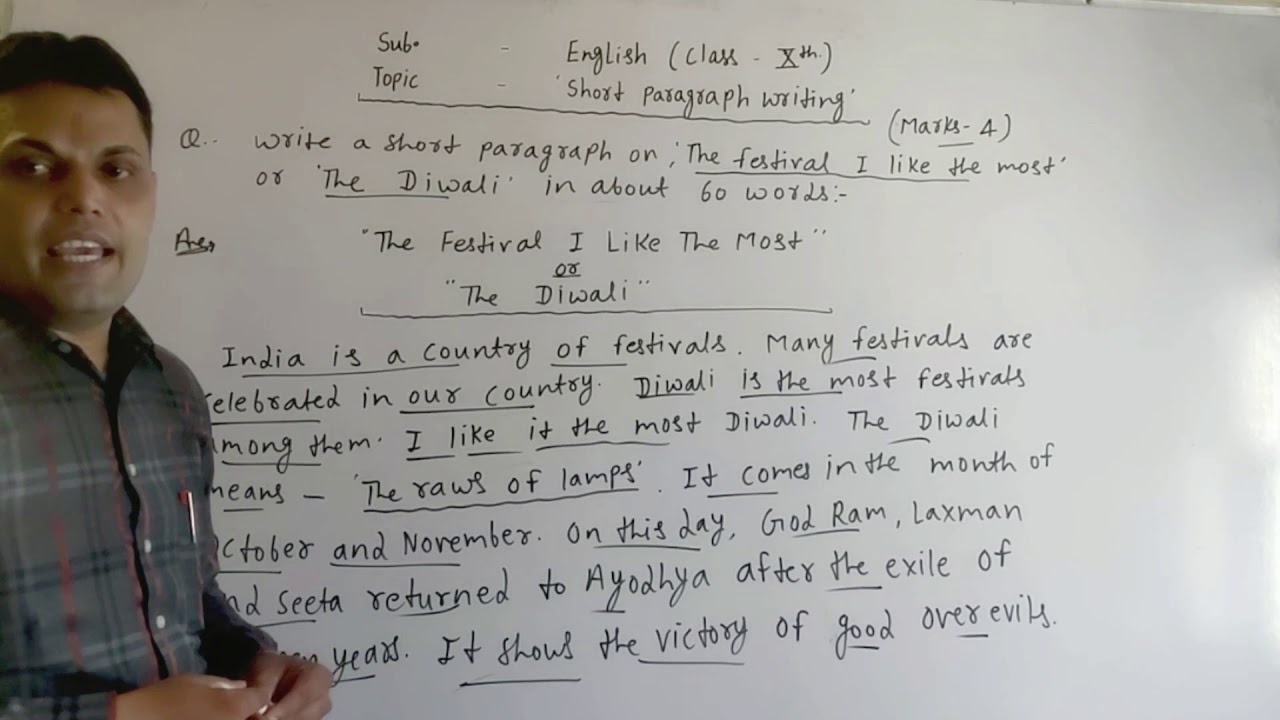 Sub. - English (Class - Xth.)
Topic - 'Short paragraph writing'
(Marks - 4)
Q.. Write a short paragraph on, 'The festival I like the most'
or 'The Diwali' in about 60 words:-
Ans, "The Festival I Like The Most"
or
"The Diwali"
India is a country of festivals. Many festivals are
elebrated in our country. Diwali is the most festivals
among them. I like it the most Diwali. The Diwali
means - 'The raws of lamps'. It comes in the month of
ctober and November. On this day, God Ram, Laxman
nd Seeta returned to Ayodhya after the exile of
years. It shows the victory of good over evils.